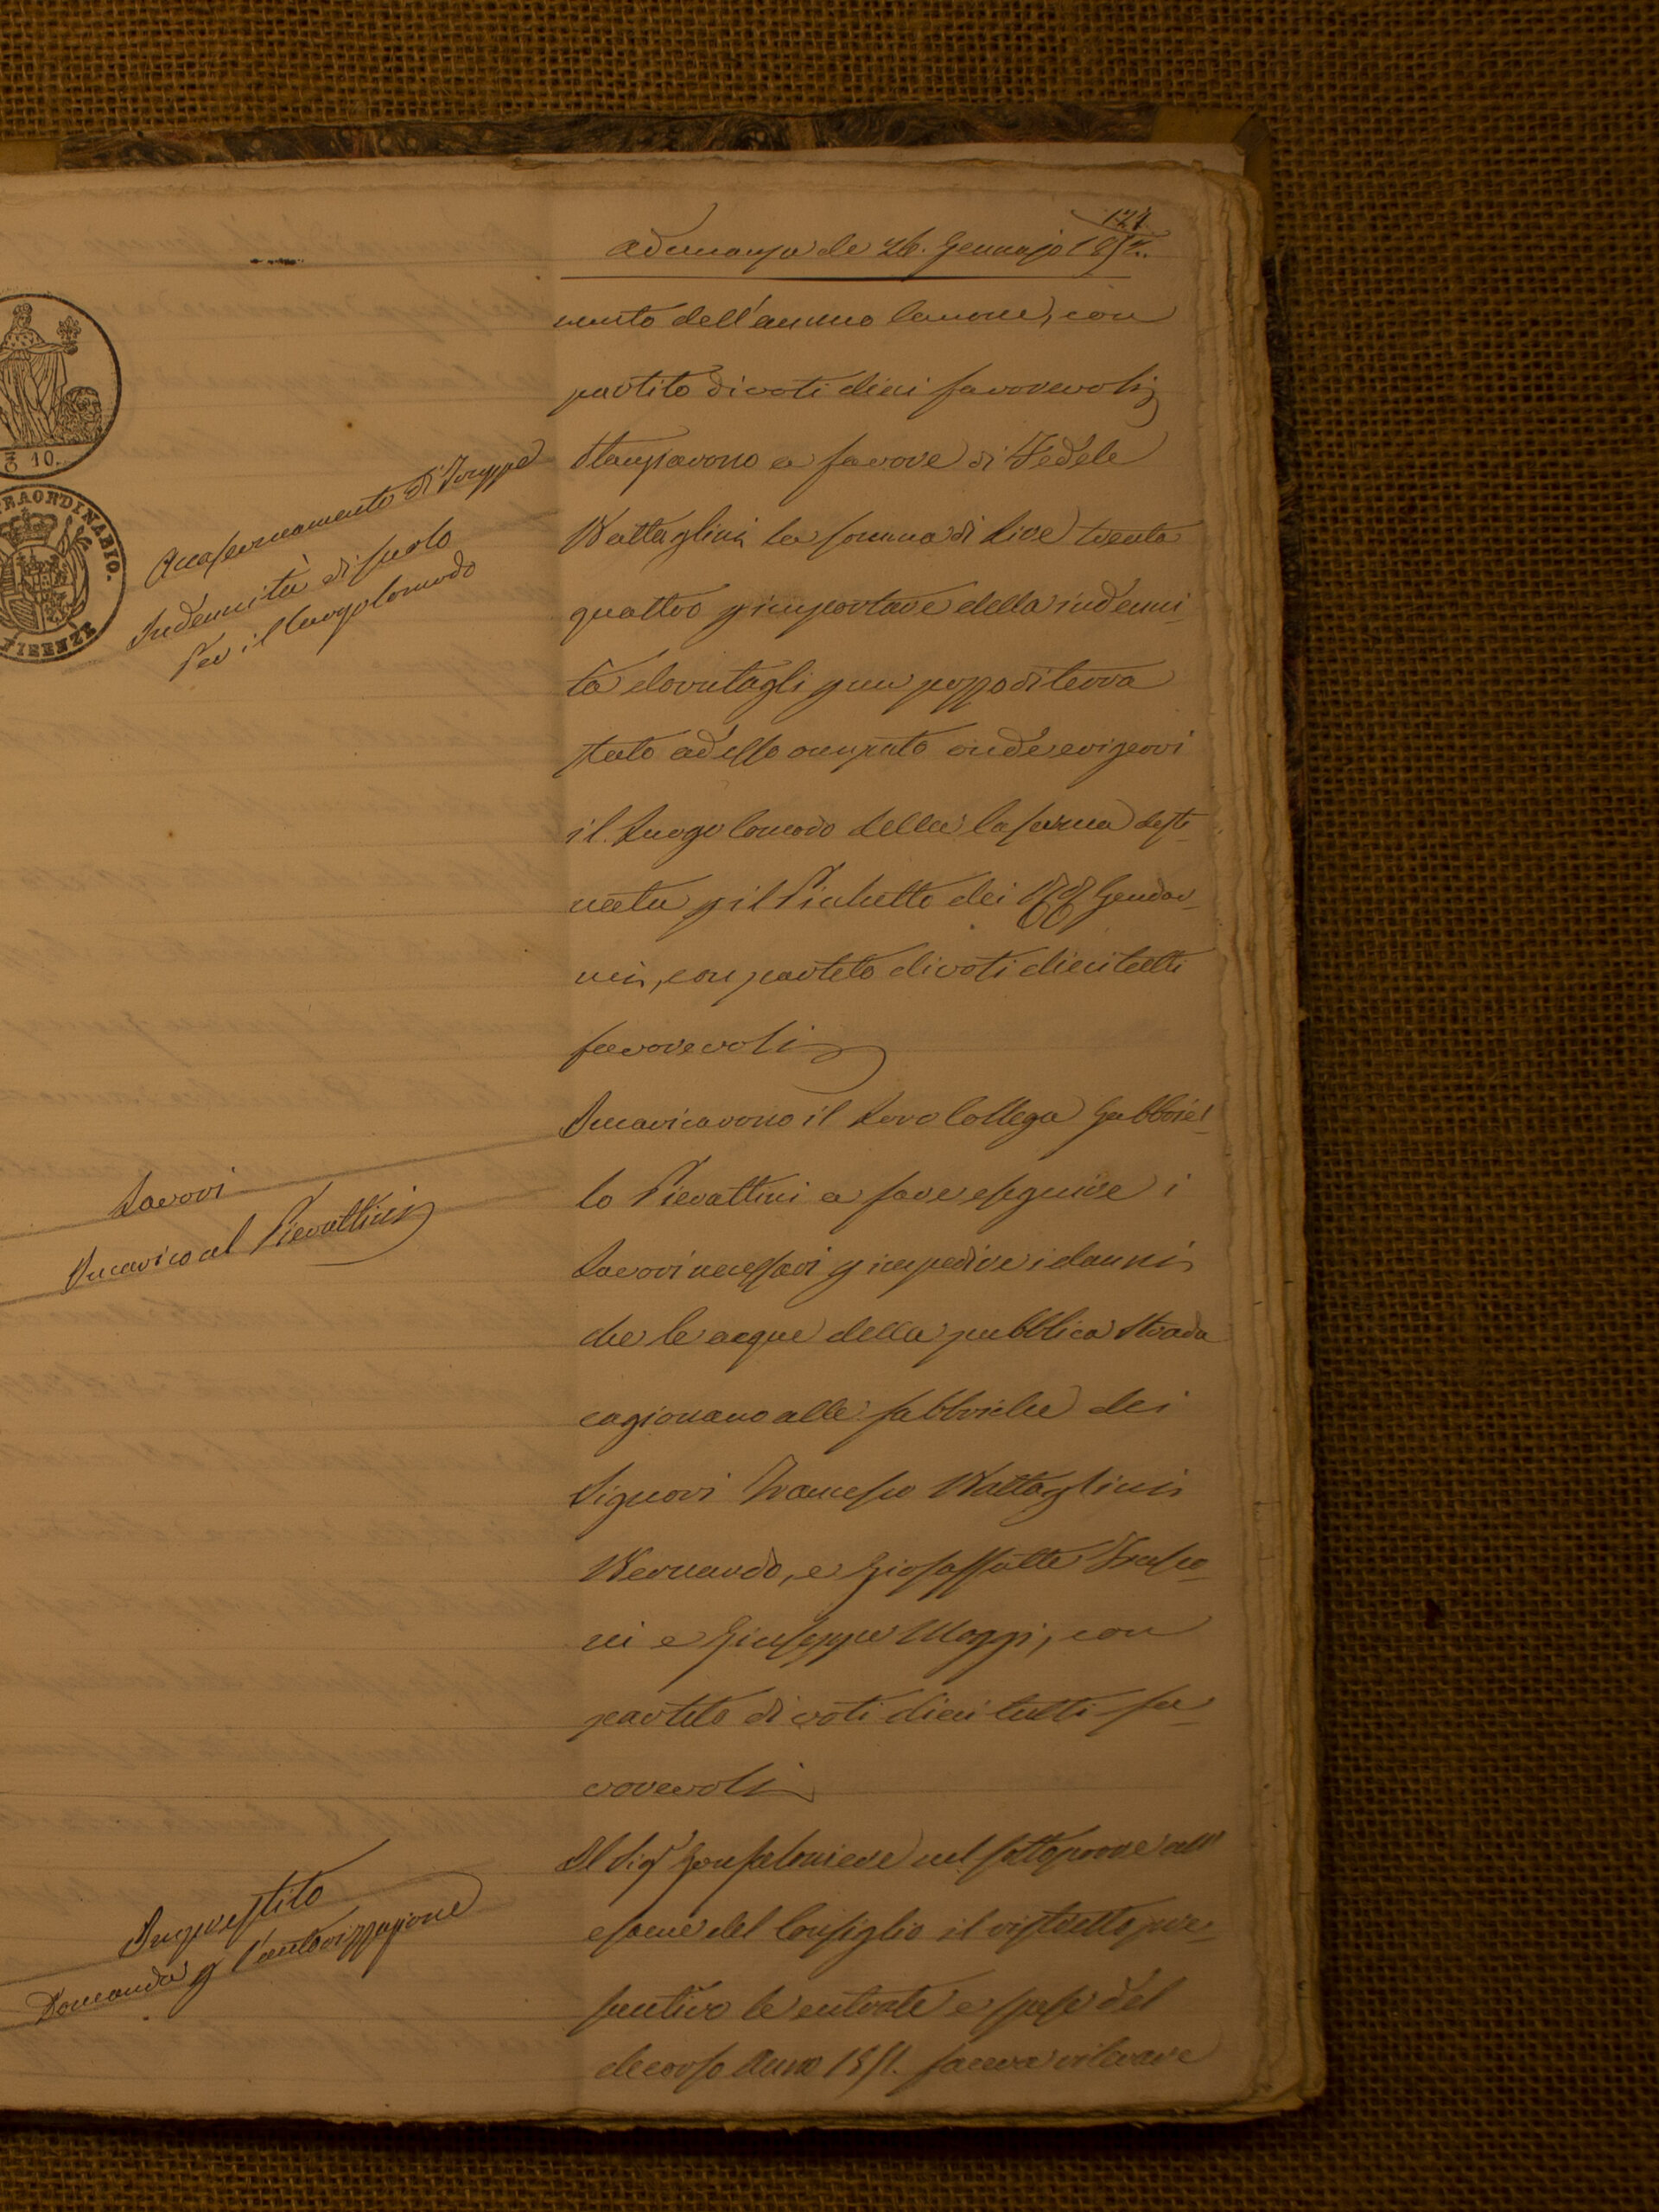 121.
Adunanza de 26. Gennajo 1852.
mento dell'annuo Canone, con
partito di voti dieci favorevoli
Stanziarono a favore di Fedele
Battaglini la somma di Lire trenta
quattro p importare della indenni-
tà dovutagli p un pezzo di terra
stato ad esso occupato onde erigervi
il Luogo Comodo della Caserma desti-
nata p il Picchetto dei RR Gendar-
mi, con partito di voti dieci tutti
favorevoli
Incaricarono il Loro Collega Gabbriel-
lo Pierattini a fare eseguire i
Lavori necessari p impedire i danni
che le acque della pubblica Strada
cagionano alle fabbriche dei
Signori Francesco Battaglini
Bernardo, e Giosaffatte Frasco-
ni e Giuseppe Maggi, con
partito di voti dieci tutti fa-
vorevoli
Il Sigr Gonfaloniere nel sottoporre all'
esame del Consiglio il ristretto pre-
suntivo le entrate e spese del
decorso Anno 1851. faceva rilevare
10.
STRAORDINARIO.
FIRENZE
Accasermamento di Truppa
Indennità di suolo
Per il luogo Comodo
Lavori
Incarico al Pierattini
Imprestito
Domanda p l'autorizzazione